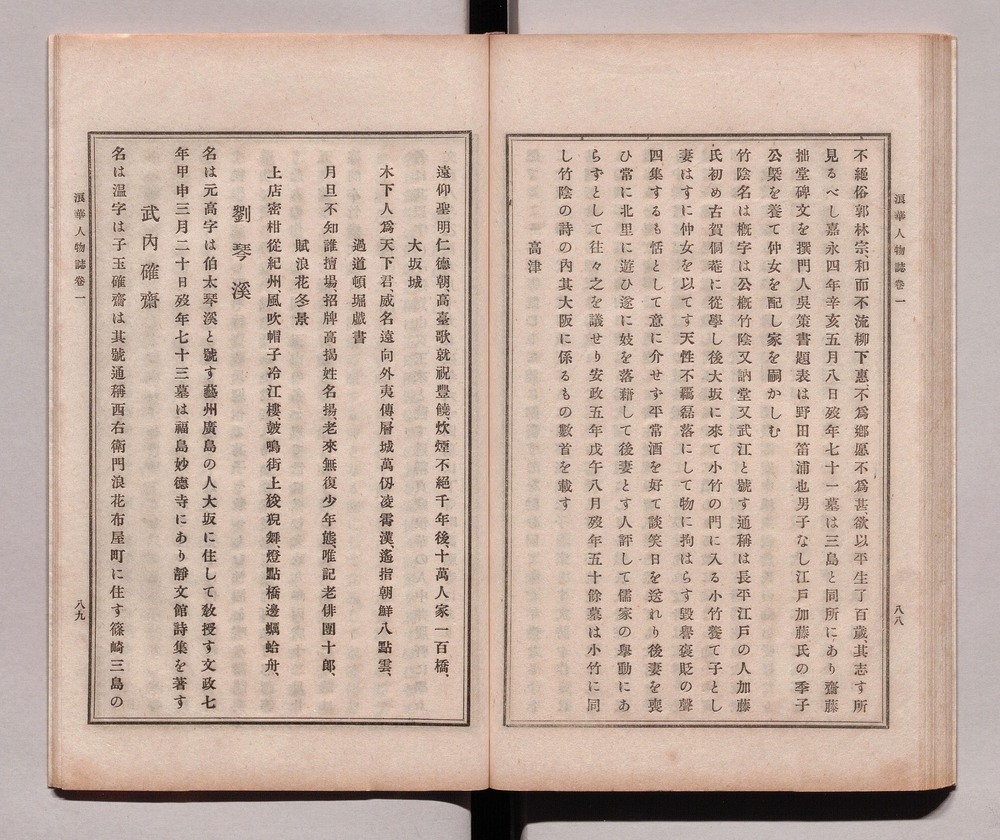 浪華人物誌卷一
八八
不絕俗郭林宗、和而不流柳下惠、不爲鄉愿不爲甚、欲以平生了百歲、其志す所
見るべし嘉永四年辛亥五月八日歿年七十一墓は三島と同所にあり齋藤
拙堂碑文を撰門人吳策書題表は野田笛浦也男子なし江戶加藤氏の季子
公槩を養て仲女を配し家を嗣かしむ
竹陰名は槪字は公槪竹陰又訥堂又武江と號す通稱は長平江戶の人加藤
氏初め古賀侗菴に從學し後大坂に來て小竹の門に入る小竹養て子とし
妻はすに仲女を以てす天性不羈磊落にして物に拘はらす毀譽褒貶の聲
四集するも恬として意に介せす平常酒を好て談笑日を送れり後妻を喪
ひ常に北里に遊ひ遂に妓を落藉して後妻とす人評して儒家の擧動にあ
らずとして往々之を議せり安政五年戊午八月歿年五十餘墓は小竹に同
し竹陰の詩の內其大阪に係るもの數首を載す
高津
遠仰聖明仁德朝、高臺歌就祝豐饒、炊煙不絕千年後、十萬人家一百橋、
大坂城
木下人爲天下君、威名遠向外夷傳、層城萬仭凌霄漢、遙指朝鮮八點雲、
過道頓堀戲書
月旦不知誰擅場、招牌高揭姓名揚、老來無復少年態、唯記老俳團十郞、
賦浪花冬景
上店密柑從紀州、風吹帽子冷江樓、鼓鳴街上狻猊舞、燈點橋邊蠣蛤舟、
劉琴溪
名は元高字は伯太琴溪と號す藝州廣島の人大坂に住して敎授す文政七
年甲申三月二十日歿年七十三墓は福島妙德寺にあり靜文館詩集を著す
武內確齋
名は温字は子玉確齋は其號通稱西右衛門浪花布屋町に住す篠崎三島の
浪華人物誌卷一
八九